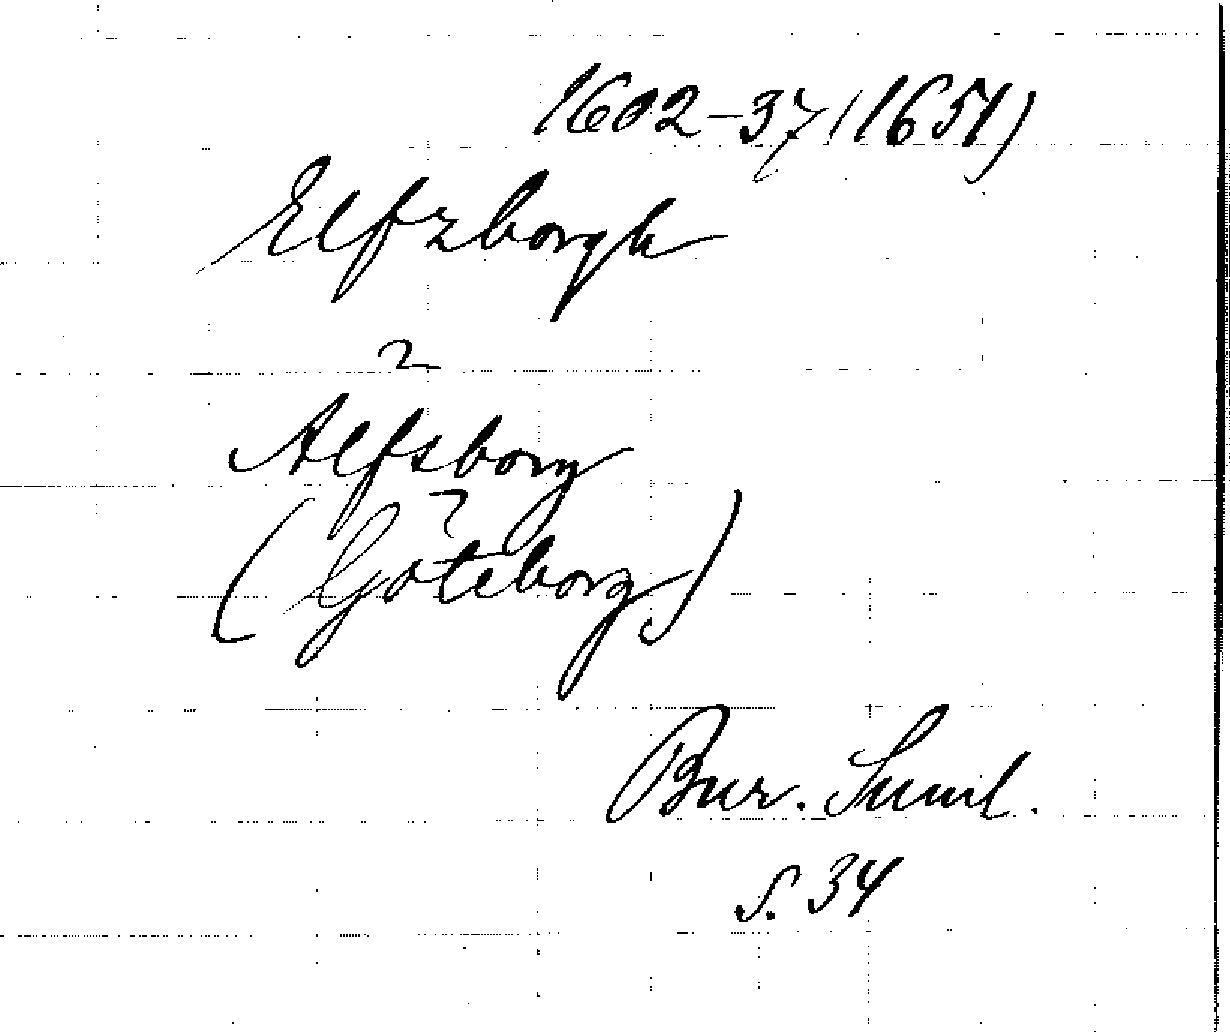 1602-37 (1651)
Elfzborgh
2
Alfsborg
?
(Göteborg)
Bur. Suml.
s. 34